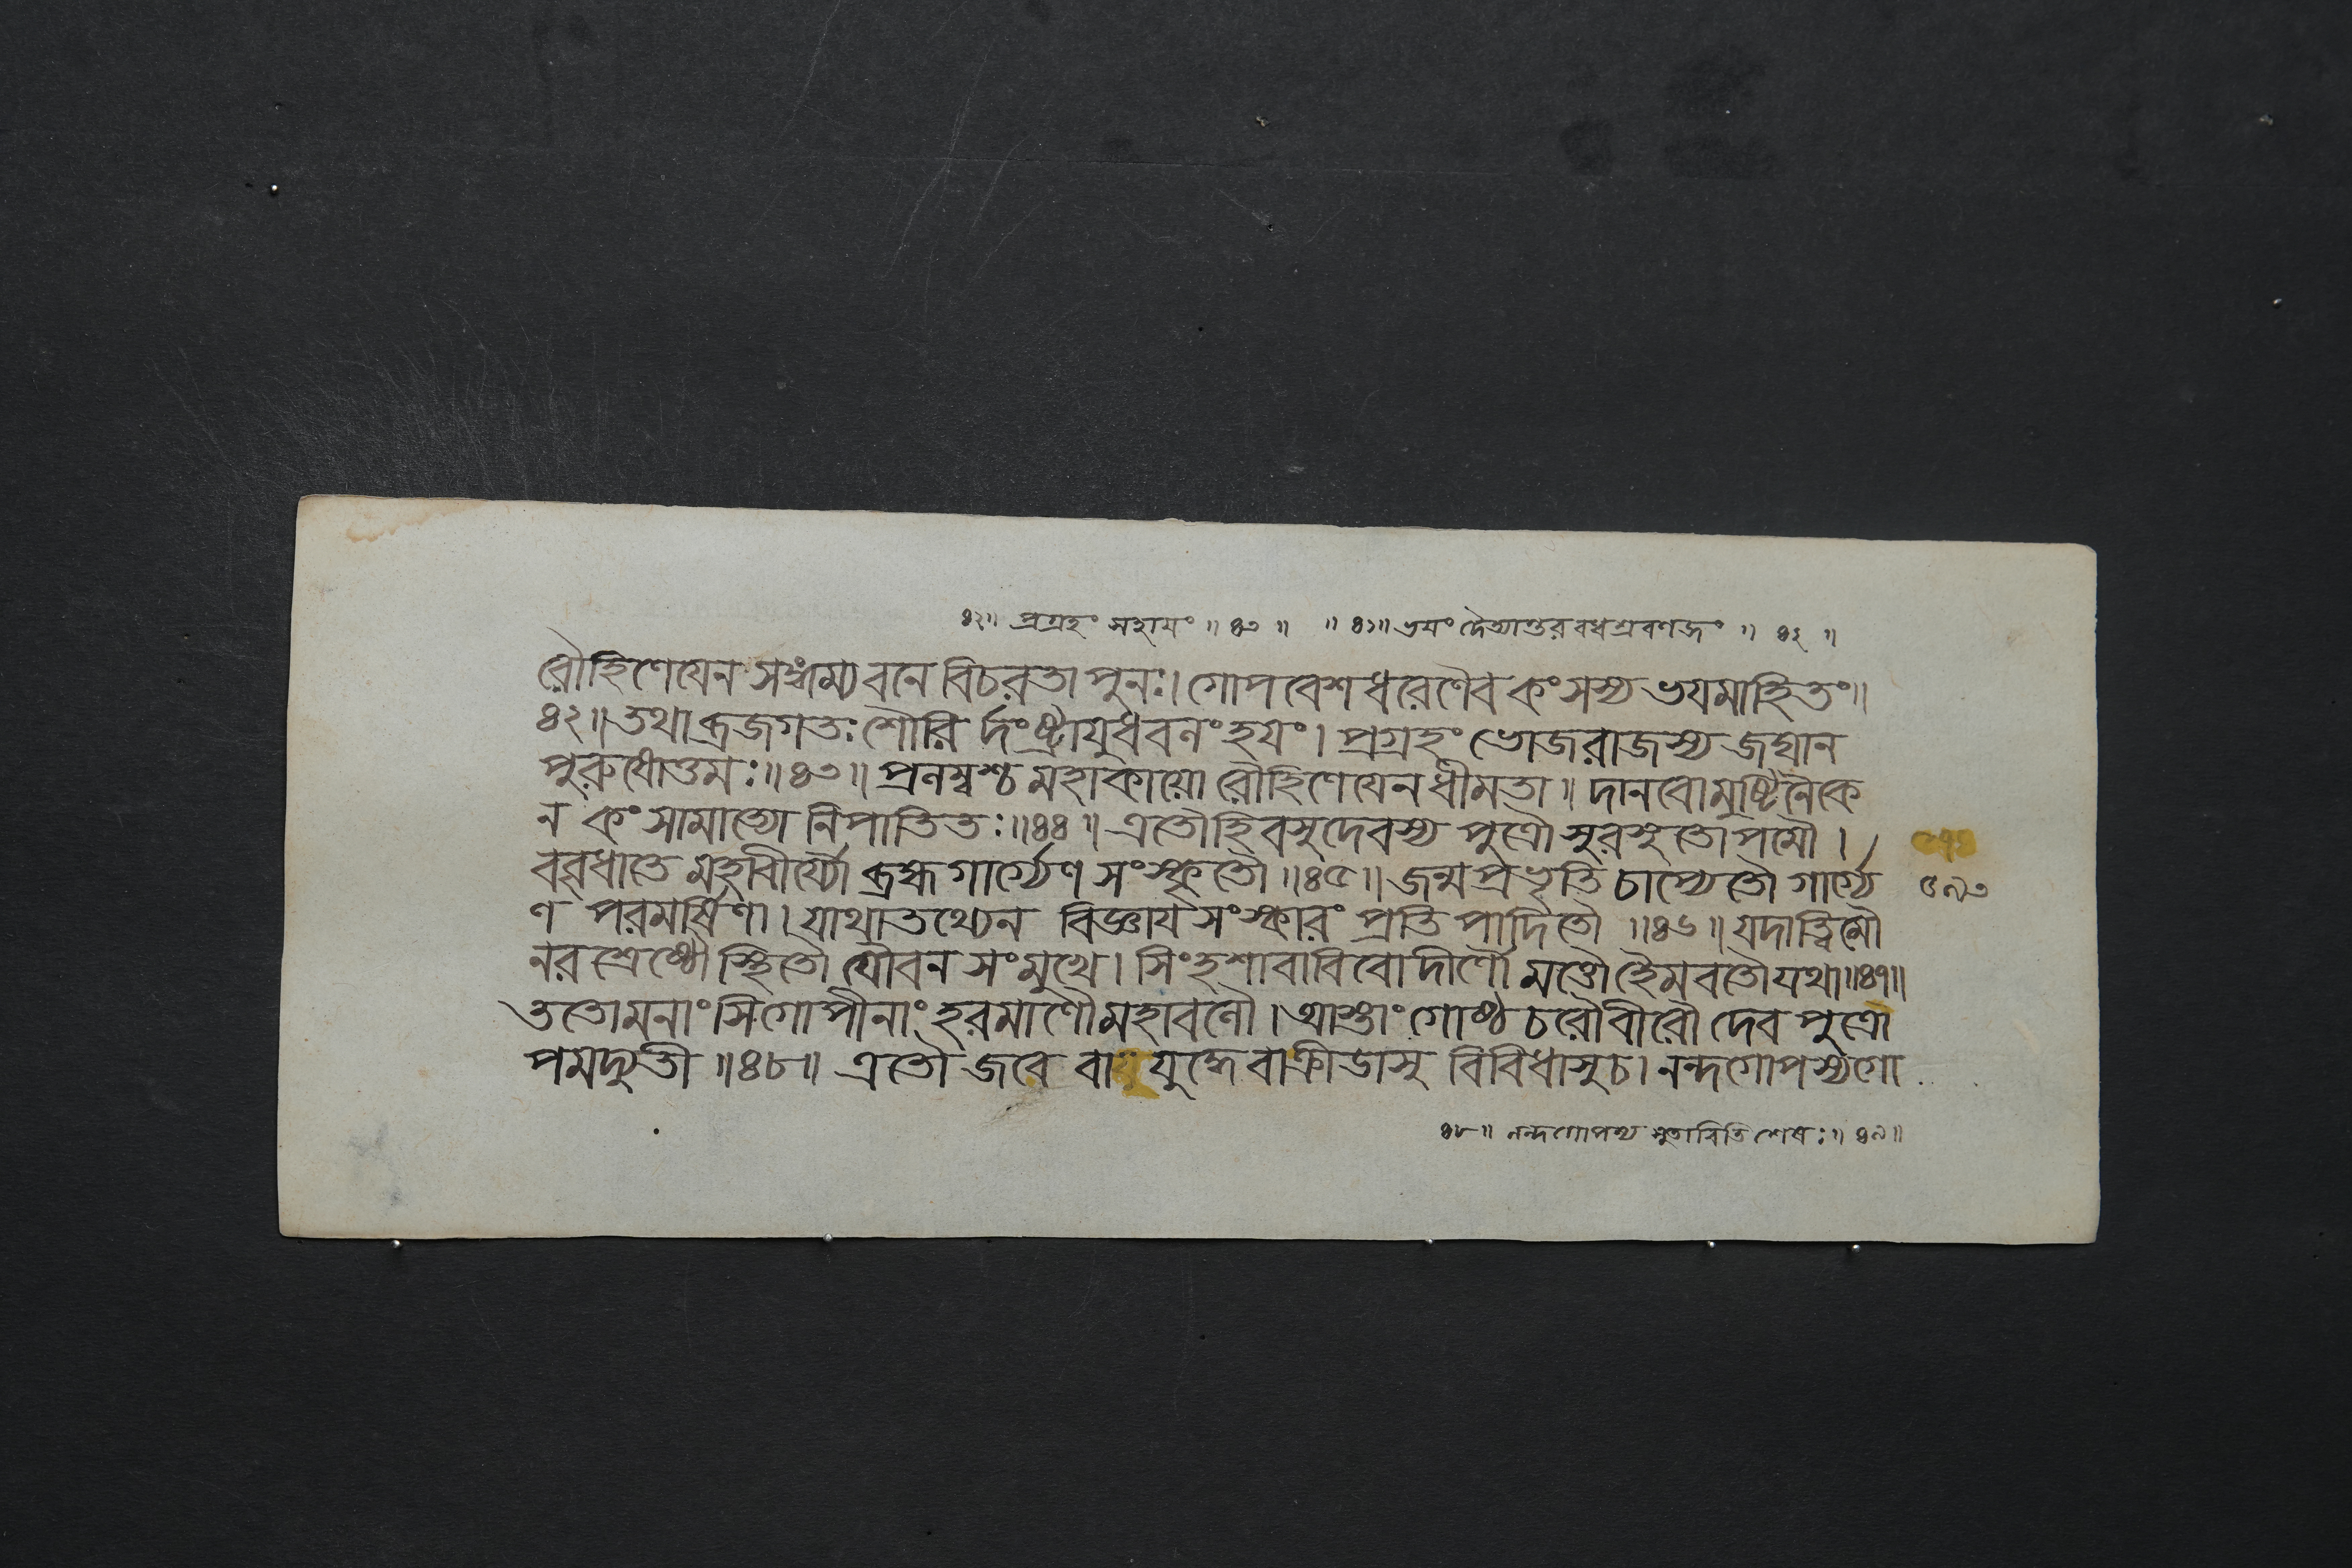 ৪২॥ প্রগ্রহং সহাযং ॥ ৪৩ ॥ ॥ ৪১॥ ভযং দৈত্যান্তরবধশ্রবণজং ॥ ৪২ ॥
রৌহিণেযেন সঙ্গম্য বনে বিচরতা পুনঃ। গোপবেশধরেণৈব কংসস্য ভযমাহিতং॥
৪২॥ তথা ব্রজগতঃ শৌরি র্দংষ্ট্রাযুধবলং হযং। প্রগ্রহং ভোজরাজস্য জঘান
পুরুষোত্তমঃ॥৪৩॥ প্রলম্বশ্চ মহাকাযো রৌহিণেযেন ধীমতা॥ দানবো মুষ্টিনৈকে
ন কংসামাত্যো নিপাতিতঃ॥৪৪॥ এতৌহি বসুদেবস্য পুত্রৌ সুরসুতোপমৌ।
ববৃধাতে মহাবীর্য্যৌ ব্রহ্মগার্গ্যেণ সংস্কৃতৌ॥৪৫॥ জন্মপ্রভৃতি চাপ্যেতৌ গার্গ্যে
ণ পরমর্ষিণা। যাথাতথ্যেন বিজ্ঞায সংস্কারং প্রতিপাদিতৌ ॥৪৬॥ যদাত্বিমৌ
নরশ্রেষ্ঠৌ স্থিতৌ যৌবন সংমুখে। সিংহশাবাবিবোদীর্ণৌ মত্তৌ হৈমবতৌ যথা॥৪৭॥
ততোমনাংসি গোপীনাং হরমাণৌ মহাবলৌ। আস্তাং গোষ্ঠচরৌ বীরৌ দেবপুত্রৌ
পমদ্যুতী ॥৪৮॥ এতৌ জবে বা যুদ্ধে বা ক্রীডাসু বিবিধাসুচ। নন্দগোপস্য গো
৫৯৩
৪৮॥ নন্দগোপস্য সুতাবিতি শেষঃ॥ ৪৯॥